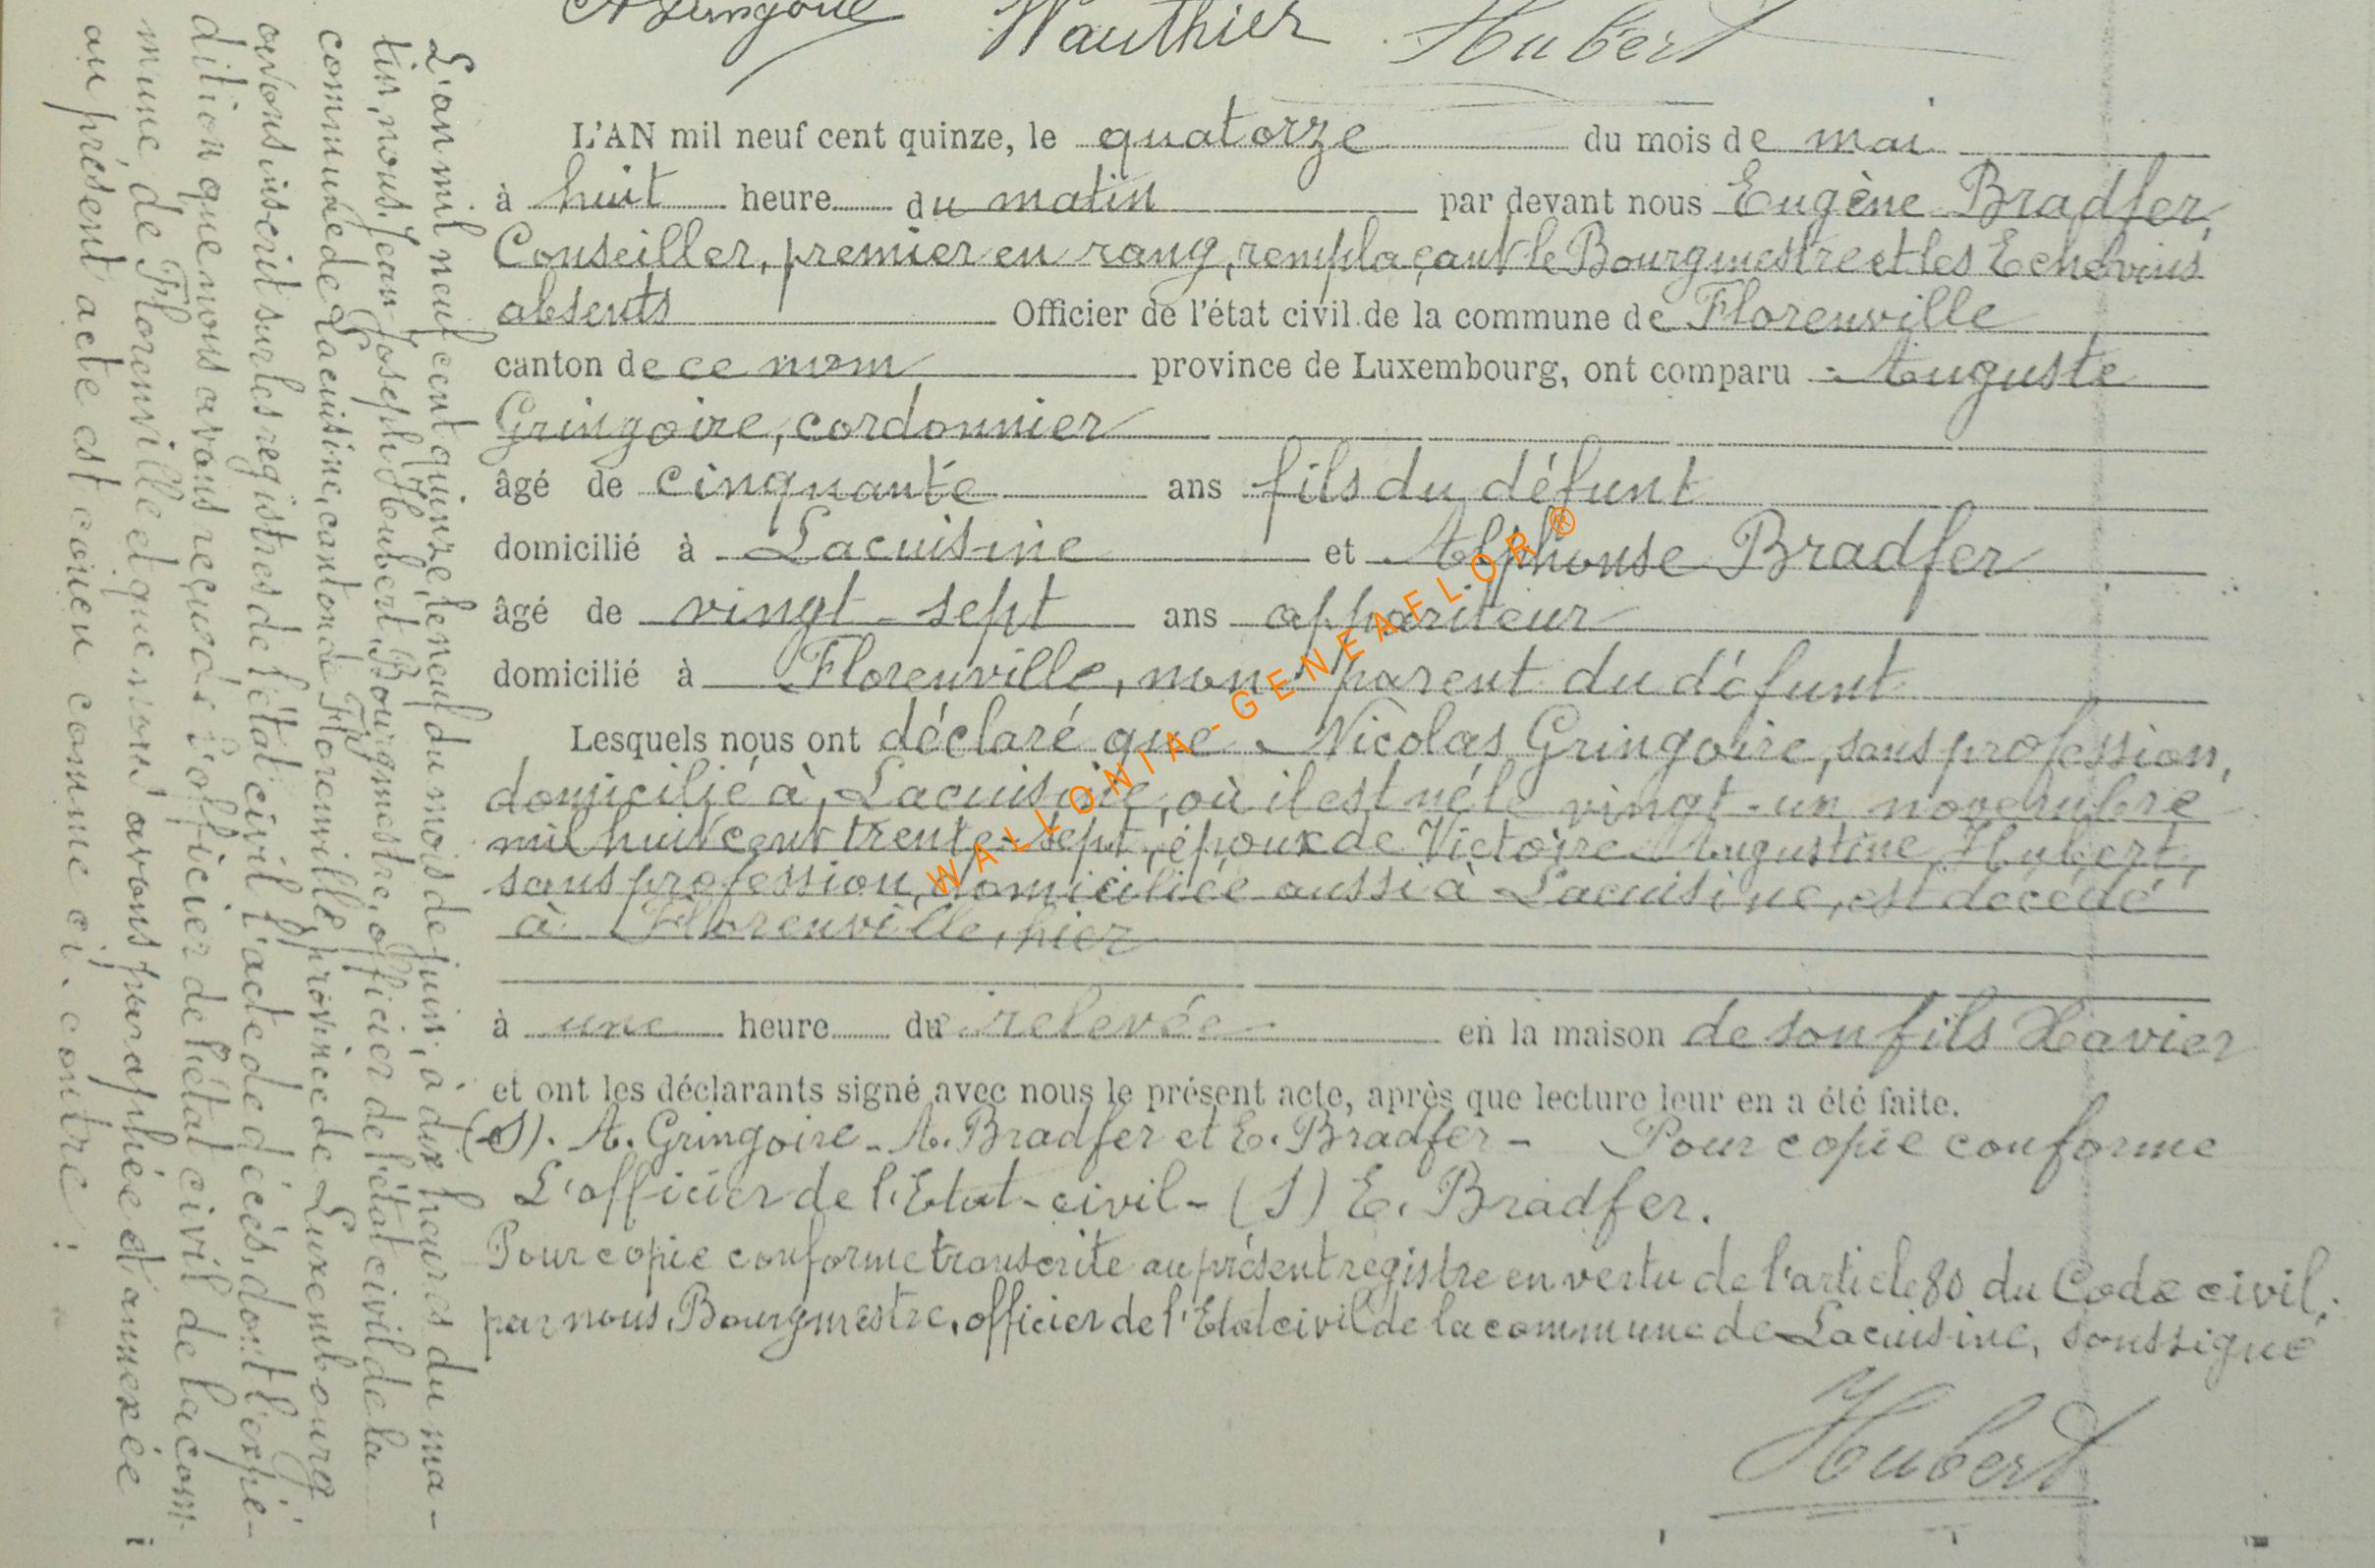 Wauthier Hubert
L'AN mil neuf cent quinze, le quatorze du mois de mai
à huit heure du matin par devant nous Eugène Bradfer,
Conseiller, premier en rang, remplaçant le Bourgmestre et les Echevins
absents Officier de l'état civil de la commune de Florenville
canton de ce nom province de Luxembourg, ont comparu Auguste
Gringoire, cordonnier
âgé de cinquante ans fils du défunt
domicilié à Lacuisine et Alphonse Bradfer
âgé de vingt-sept ans appariteur
domicilié à Florenville, non parent du défunt
Lesquels nous ont déclaré que Nicolas Gringoire, sans profession,
domicilié à Lacuisine, où il est né le vingt-un novembre
mil huit cent trente-sept, époux de Victoire Augustine Hubert,
sans profession, domiciliée aussi à Lacuisine, est décédé
à Florenville, hier
à une heure de relevée en la maison de son fils Xavier
et ont les déclarants signé avec nous le présent acte, après que lecture leur en a été faite.
(S). A. Gringoire - A. Bradfer et E. Bradfer - Pour copie conforme
L'officier de l'Etat-civil - (S) E. Bradfer.
Pour copie conforme transcrite au présent registre en vertu de l'article 80 du Code civil,
par nous, Bourgmestre, officier de l'Etat civil de la commune de Lacuisine, soussigné
Hubert
L'an mil neuf cent quinze, le neuf du mois de juin, à dix heures du ma-
tin, nous, Jean-Joseph Hubert, Bourgmestre, officier de l'état civil de la
commune de Lacuisine, canton de Florenville, province de Luxembourg
avons inscrit sur les registres de l'état civil l'acte de décès, dont l'expé-
dition que nous avons reçu de l'officier de l'état civil de la com-
mune de Florenville et que nous avons paraphée et annexée
au présent acte est conçu comme ci-contre :
WALLONIA-GENEAFLOR®